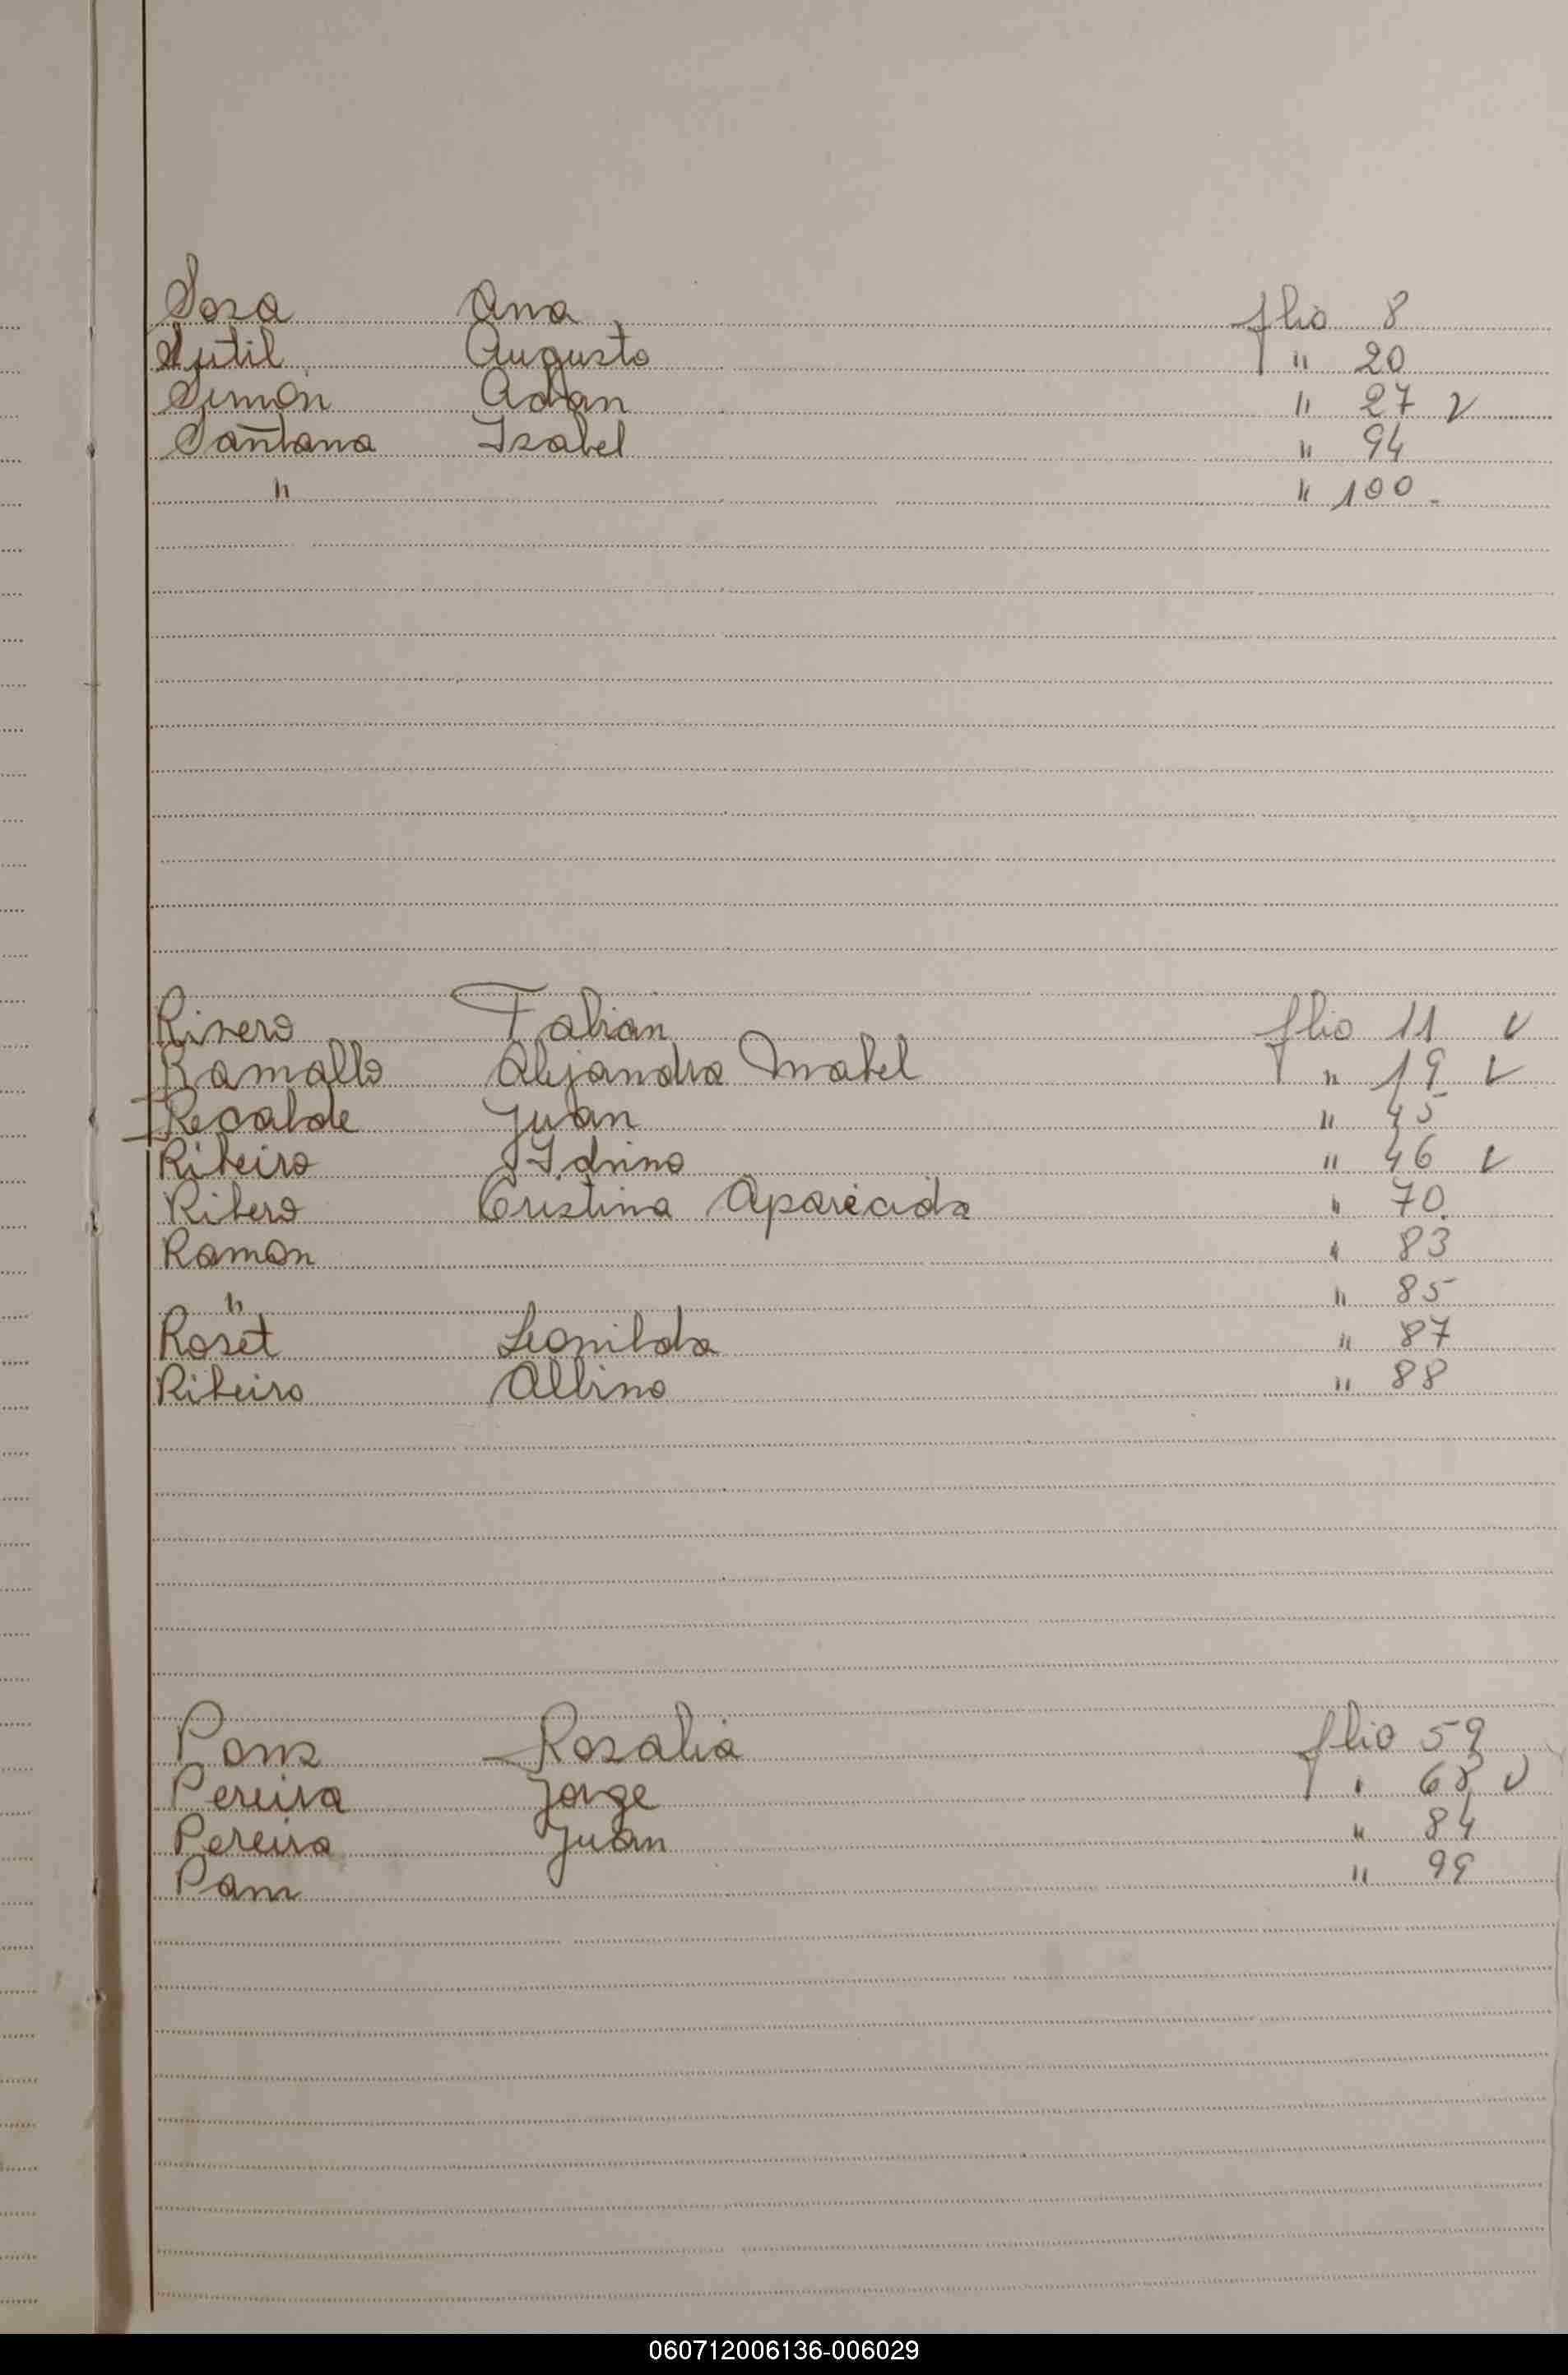 Sosa Ana flio 8
Sutil Augusto " 20
Simón Adan " 27 v
Santana Isabel " 94
" " 100.
Rivero Fabian flio 11 v
Ramallo Alejandra Mabel " 19 v
Recalde Juan " 45
Ribeiro " 46 v
Ribero Cristina Aparecida " 70.
Ramon " 83
" " 85
Roset Leonilda " 87
Ribeiro Albino " 88
Pons Rosalia flio 59
Pereira Jorge " 68 v
Pereira Juan " 84
" 99
060712006136-006029